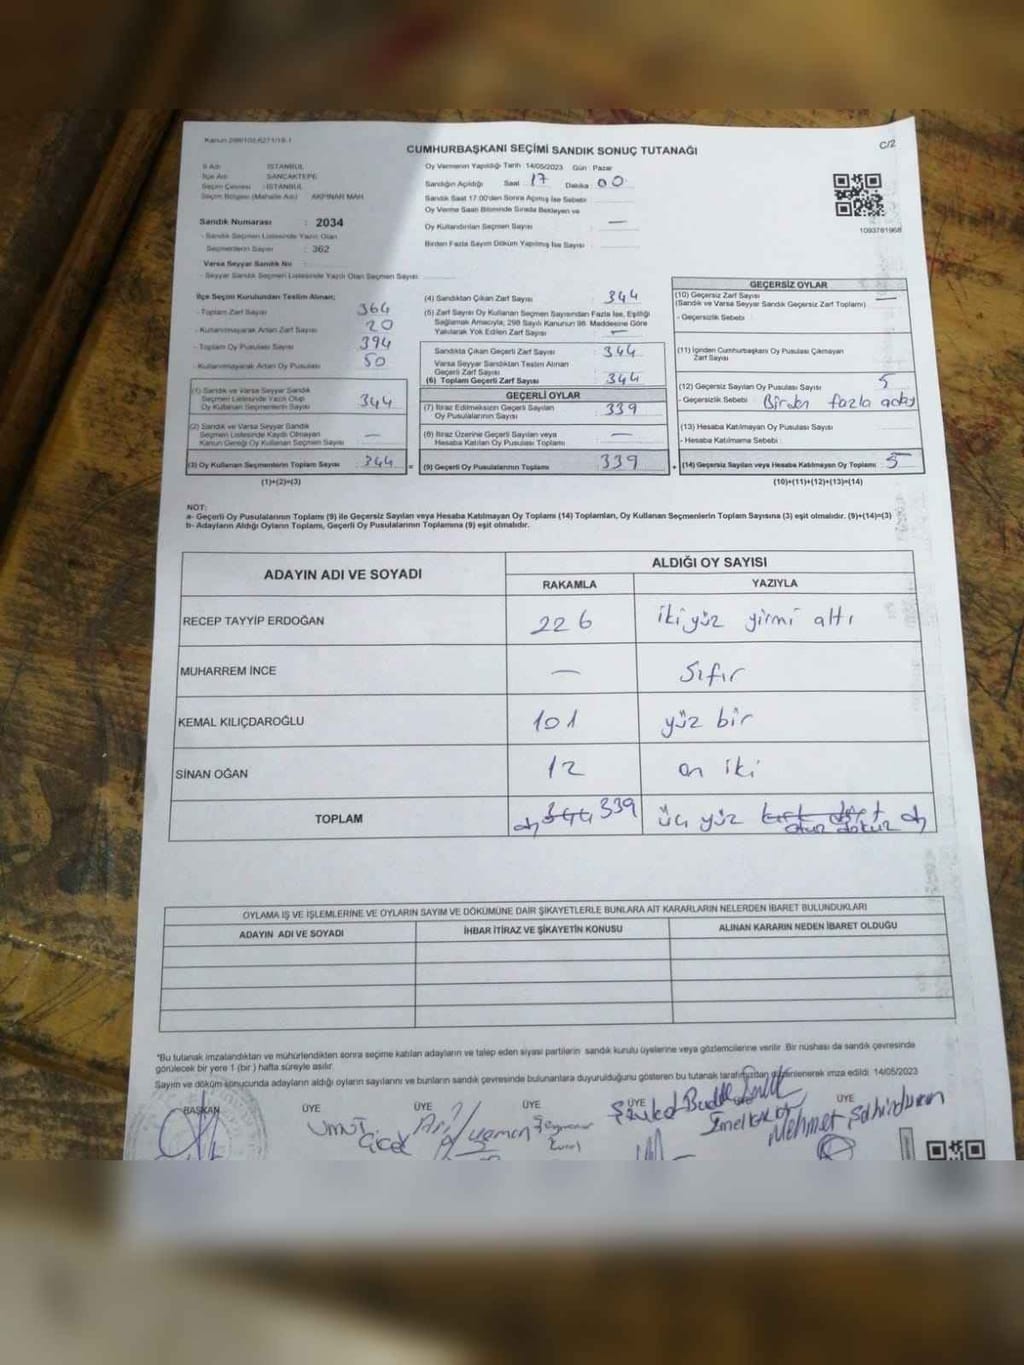 Kanun 298/102-6271/18-1
C/2
CUMHURBAŞKANI SEÇİMİ SANDIK SONUÇ TUTANAĞI
İl Adı : İSTANBUL
İlçe Adı : SANCAKTEPE
Seçim Çevresi : İSTANBUL
Seçim Bölgesi (Mahalle Adı) : AKPINAR MAH
Sandık Numarası : 2034
- Sandık Seçmen Listesinde Yazılı Olan
Seçmenlerin Sayısı : 362
Varsa Seyyar Sandık No :
- Seyyar Sandık Seçmen Listesinde Yazılı Olan Seçmen Sayısı
Oy Vermenin Yapıldığı Tarih :14/05/2023 Gün : Pazar
Sandığın Açıldığı Saat 17 Dakika 00
Sandık Saat 17:00'den Sonra Açılmış İse Sebebi
Oy Verme Saati Bitiminde Sırada Bekleyen ve
Oy Kullandırılan Seçmen Sayısı —
Birden Fazla Sayım Döküm Yapılmış İse Sayısı
1093781968
İlçe Seçim Kurulundan Teslim Alınan;
- Toplam Zarf Sayısı 364
- Kullanılmayarak Artan Zarf Sayısı 20
- Toplam Oy Pusulası Sayısı 394
- Kullanılmayarak Artan Oy Pusulası 50
(1) Sandık ve Varsa Seyyar Sandık
Seçmen Listesinde Yazılı Olup
Oy Kullanan Seçmenlerin Sayısı 344
(2) Sandık ve Varsa Seyyar Sandık
Seçmen Listesinde Kayıtlı Olmayan
Kanun Gereği Oy Kullanan Seçmen Sayısı —
(3) Oy Kullanan Seçmenlerin Toplam Sayısı 344 =
(1)+(2)=(3)
(4) Sandıktan Çıkan Zarf Sayısı 344
(5) Zarf Sayısı Oy Kullanan Seçmen Sayısından Fazla İse, Eşitliği
Sağlamak Amacıyla; 298 Sayılı Kanunun 98. Maddesine Göre
Yakılarak Yok Edilen Zarf Sayısı —
Sandıkta Çıkan Geçerli Zarf Sayısı 344
Varsa Seyyar Sandıktan Teslim Alınan
Geçerli Zarf Sayısı
(6) Toplam Geçerli Zarf Sayısı 344
GEÇERLİ OYLAR
(7) İtiraz Edilmeksizin Geçerli Sayılan
Oy Pusulalarının Sayısı 339
(8) İtiraz Üzerine Geçerli Sayılan veya
Hesaba Katılan Oy Pusulası Toplamı —
(9) Geçerli Oy Pusulalarının Toplamı 339 +
GEÇERSİZ OYLAR
(10) Geçersiz Zarf Sayısı —
(Sandık ve Varsa Seyyar Sandık Geçersiz Zarf Toplamı)
- Geçersizlik Sebebi :
(11) İçinden Cumhurbaşkanı Oy Pusulası Çıkmayan
Zarf Sayısı
(12) Geçersiz Sayılan Oy Pusulası Sayısı 5
- Geçersizlik Sebebi : Birden fazla
(13) Hesaba Katılmayan Oy Pusulası Sayısı
- Hesaba Katılmama Sebebi :
(14) Geçersiz Sayılan veya Hesaba Katılmayan Oy Toplamı 5
(10)+(11)+(12)+(13)=(14)
NOT:
a- Geçerli Oy Pusulalarının Toplamı (9) ile Geçersiz Sayılan veya Hesaba Katılmayan Oy Toplamı (14) Toplamları, Oy Kullanan Seçmenlerin Toplam Sayısına (3) eşit olmalıdır. (9)+(14)=(3)
b- Adayların Aldığı Oyların Toplamı, Geçerli Oy Pusulalarının Toplamına (9) eşit olmalıdır.
ADAYIN ADI VE SOYADI
ALDIĞI OY SAYISI
RAKAMLA YAZIYLA
RECEP TAYYİP ERDOĞAN 226 iki yüz yirmi altı
MUHARREM İNCE — Sıfır
KEMAL KILIÇDAROĞLU 101 yüz bir
SİNAN OĞAN 12 on iki
TOPLAM 344 339 üç yüz kırk dört
otuz dokuz
OYLAMA İŞ VE İŞLEMLERİNE VE OYLARIN SAYIM VE DÖKÜMÜNE DAİR ŞİKAYETLERLE BUNLARA AİT KARARLARIN NELERDEN İBARET BULUNDUKLARI
ADAYIN ADI VE SOYADI İHBAR İTİRAZ VE ŞİKAYETİN KONUSU ALINAN KARARIN NEDEN İBARET OLDUĞU
*Bu tutanak imzalandıktan ve mühürlendikten sonra seçime katılan adayların ve talep eden siyasi partilerin sandık kurulu üyelerine veya gözlemcilerine verilir. Bir nüshası da sandık çevresinde
görülecek bir yere 1 (bir ) hafta süreyle asılır.
Sayım ve döküm sonucunda adayların aldığı oyların sayılarını ve bunların sandık çevresinde bulunanlara duyurulduğunu gösteren bu tutanak tarafımızdan düzenlenerek imza edildi. 14/05/2023
BAŞKAN ÜYE ÜYE ÜYE ÜYE ÜYE
Umut
Çiçek
Mehmet